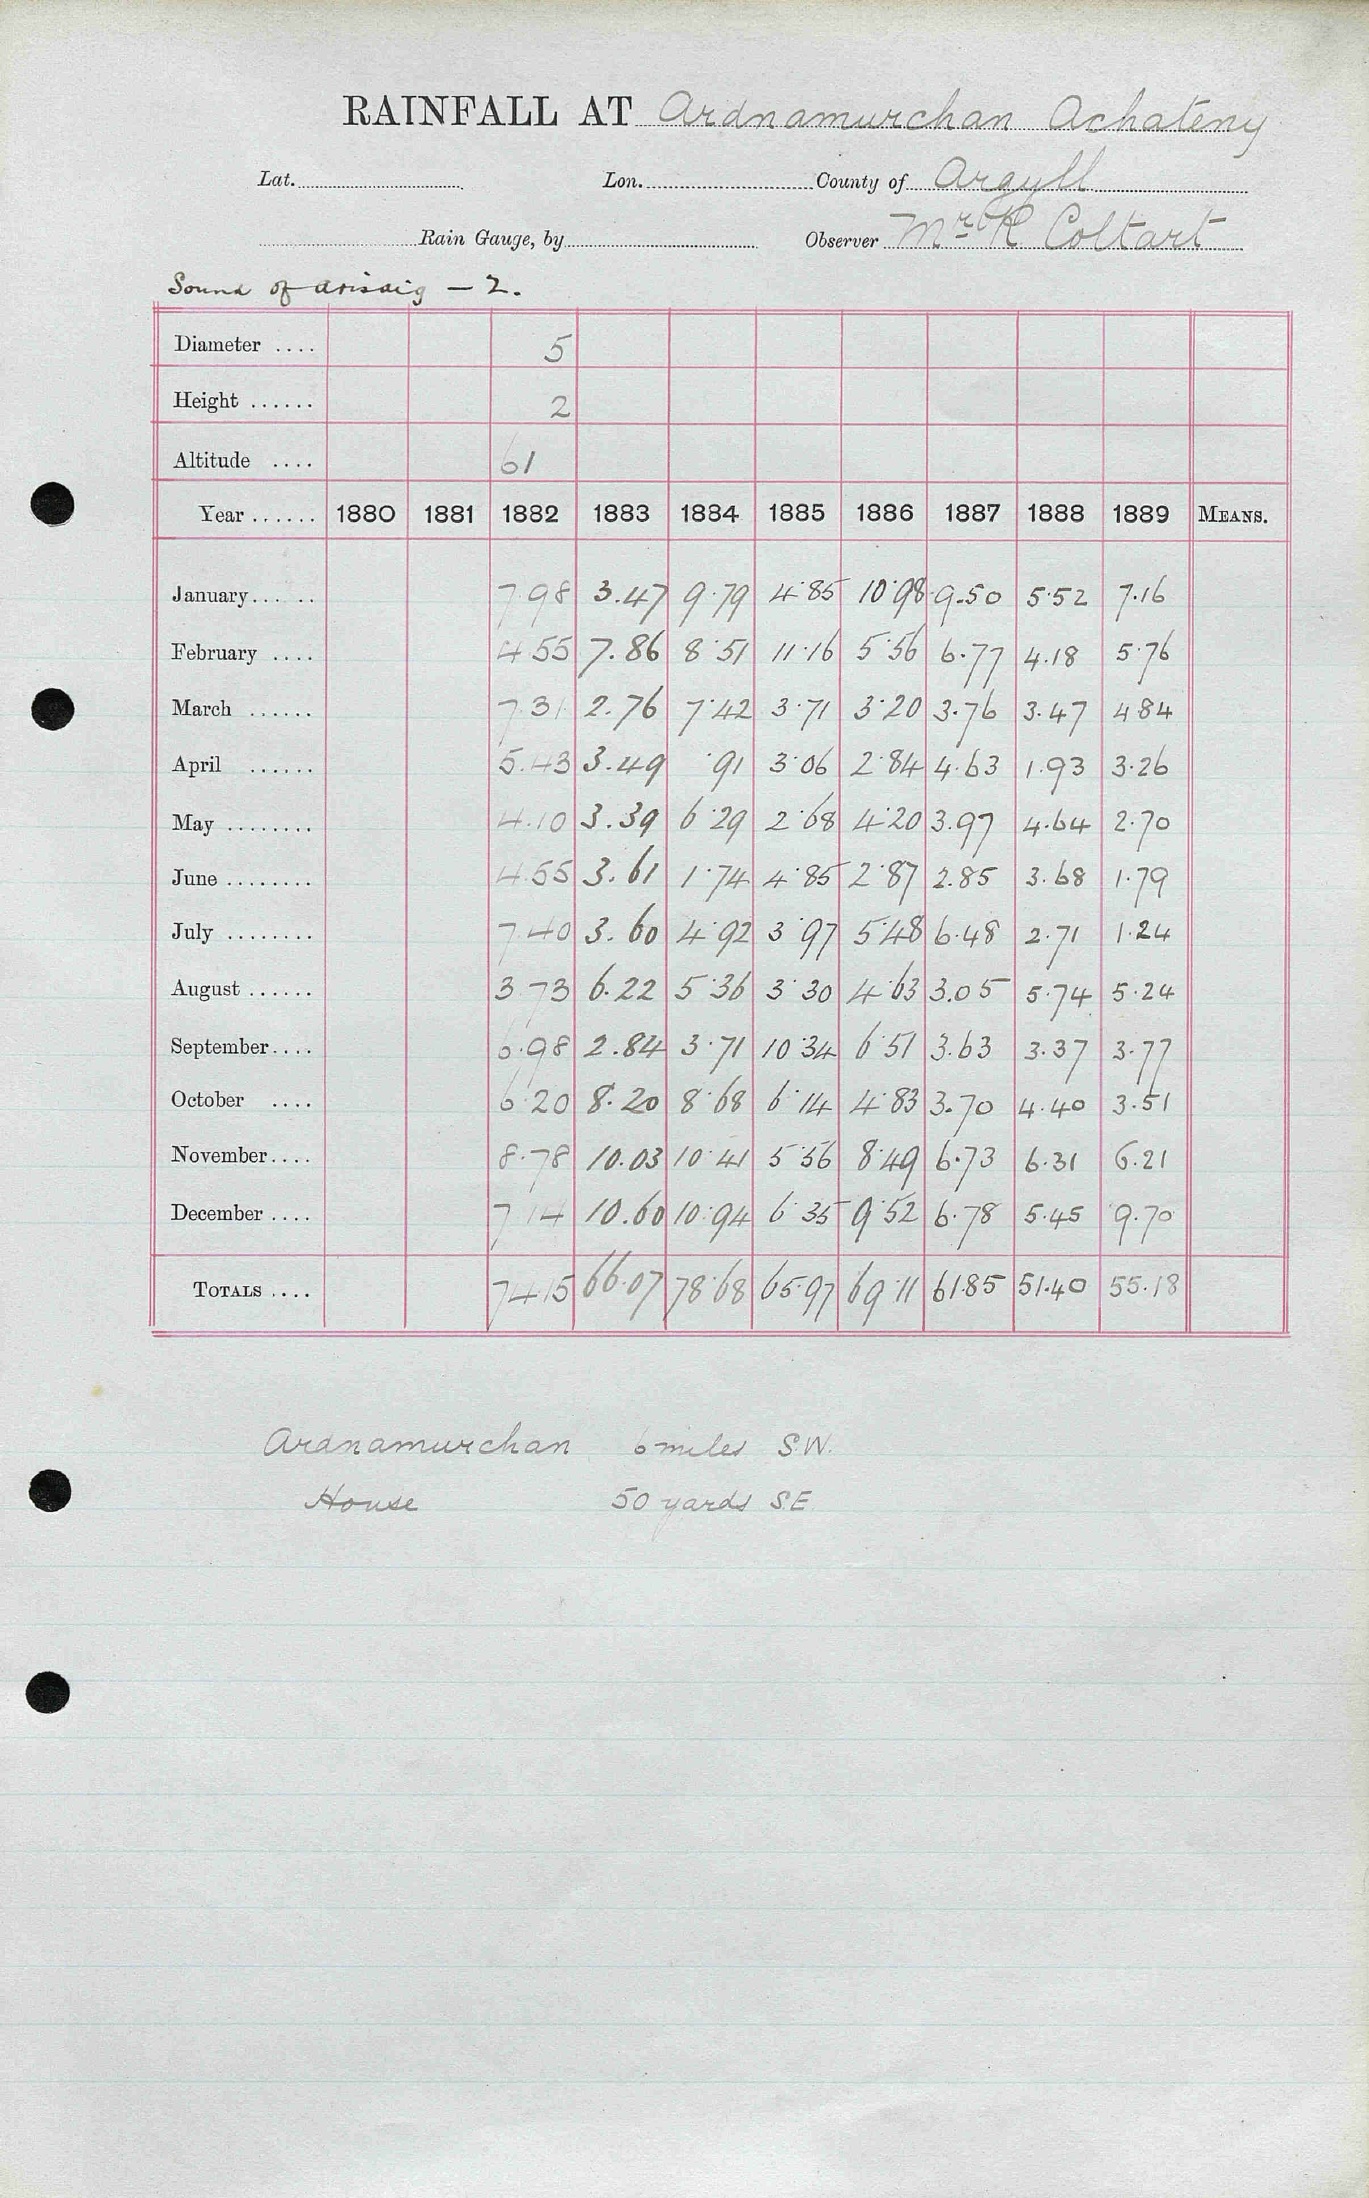 RAINFALL AT Ardnamurchan Achateny
Lat. Lon. County of Argyll
Rain Gauge, by Observer Mr. R Coltart
Sound of Arisaig — 2.
Diameter .... 5
Height ...... 2
Altitude .... 61
Year ...... 1880 1881 1882 1883 1884 1885 1886 1887 1888 1889 MEANS.
January ... .. 7.98 3.47 9.79 4.85 10.98 9.50 5.52 7.16
February .... 4.55 7.86 8.51 11.16 5.56 6.77 4.18 5.76
March ...... 7.31 2.76 7.42 3.71 3.20 3.76 3.47 4.84
April ...... 5.43 3.49 .91 3.06 2.84 4.63 1.93 3.26
May ........ 4.10 3.39 6.29 2.68 4.20 3.97 4.64 2.70
June ........ 4.55 3.61 1.74 4.85 2.87 2.85 3.68 1.79
July ........ 7.40 3.60 4.92 3.97 5.48 6.48 2.71 1.24
August ...... 3.73 6.22 5.36 3.30 4.63 3.05 5.74 5.24
September .... 6.98 2.84 3.71 10.34 6.51 3.63 3.37 3.77
October .... 6.20 8.20 8.68 6.14 4.83 3.70 4.40 3.51
November .... 8.78 10.03 10.41 5.56 8.49 6.73 6.31 6.21
December .... 7.14 10.60 10.94 6.35 9.52 6.78 5.45 9.70
TOTALS .... 74.15 66.07 78.68 65.97 69.11 61.85 51.40 55.18
Ardnamurchan 6 miles S.W.
House 50 yards S.E.